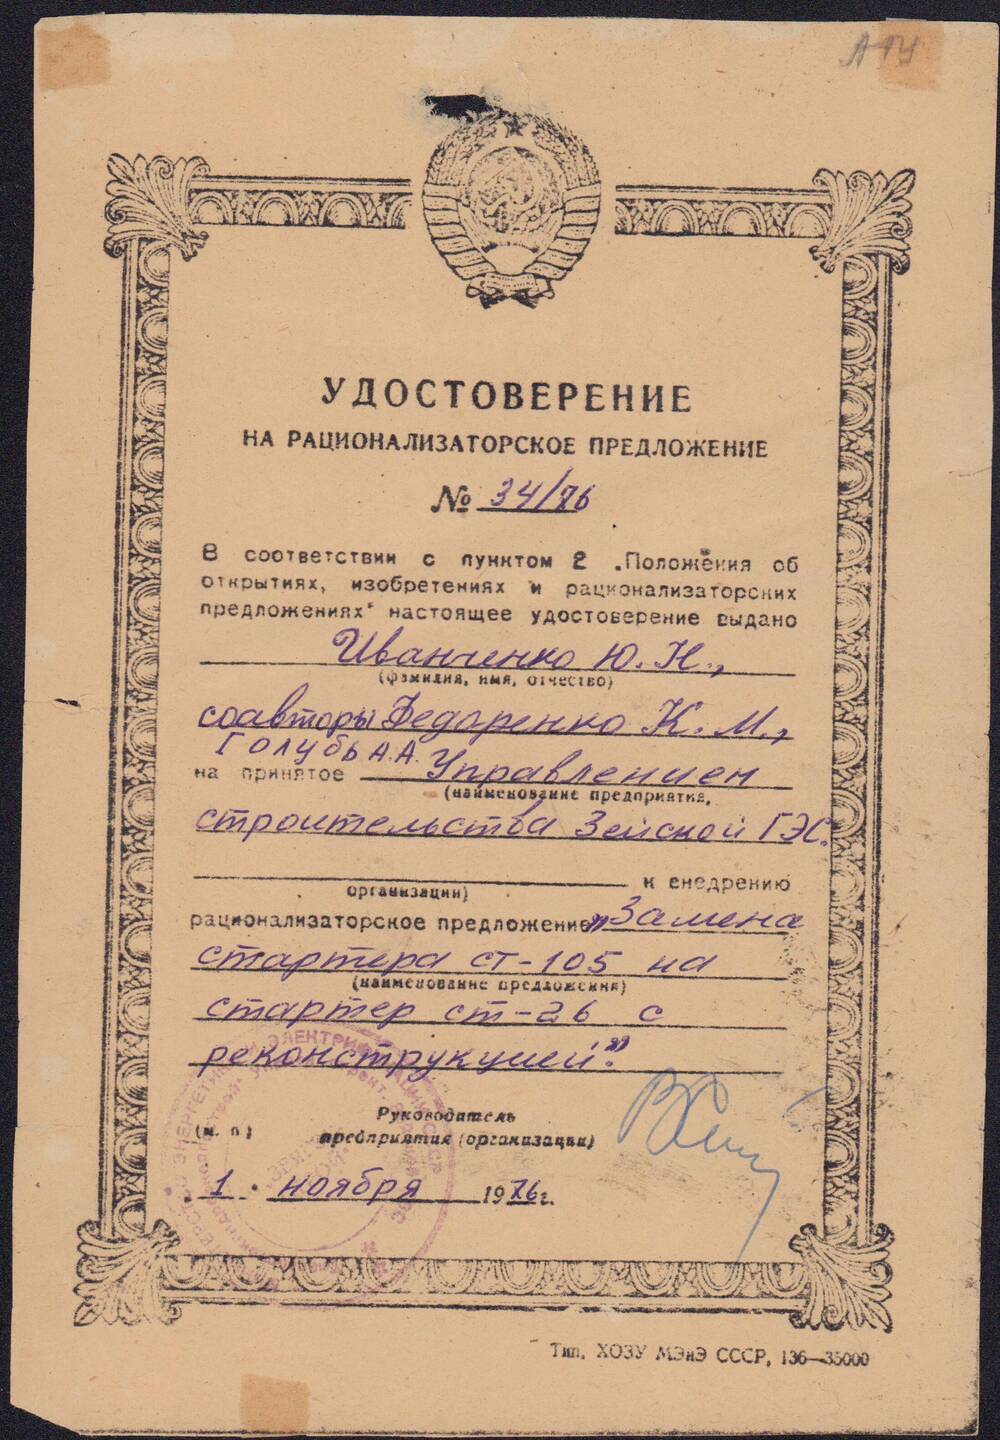 АТУ
УДОСТОВЕРЕНИЕ
НА РАЦИОНАЛИЗАТОРСКОЕ ПРЕДЛОЖЕНИЕ
№ 34/76
В соответствии с пунктом 2 „Положения об
открытиях, изобретениях и рационализаторских
предложениях" настоящее удостоверение выдано
Иванченко Ю. Н.,
(фамилия, имя, отчество)
соавторы Федоренко К. М.,
Голубь А.А.
на принятое Управлением
(наименование предприятия,
строительства Зейской ГЭС.
организации) к внедрению
рационализаторское предложение „Замена
стартера ст-105 на
(наименование предложения)
стартер ст-26 с
реконструкцией."
Руководитель
(м. п.) предприятия (организации)
„1" ноября 1976 г.
Тип. ХОЗУ МЭиЭ СССР, 136—35000